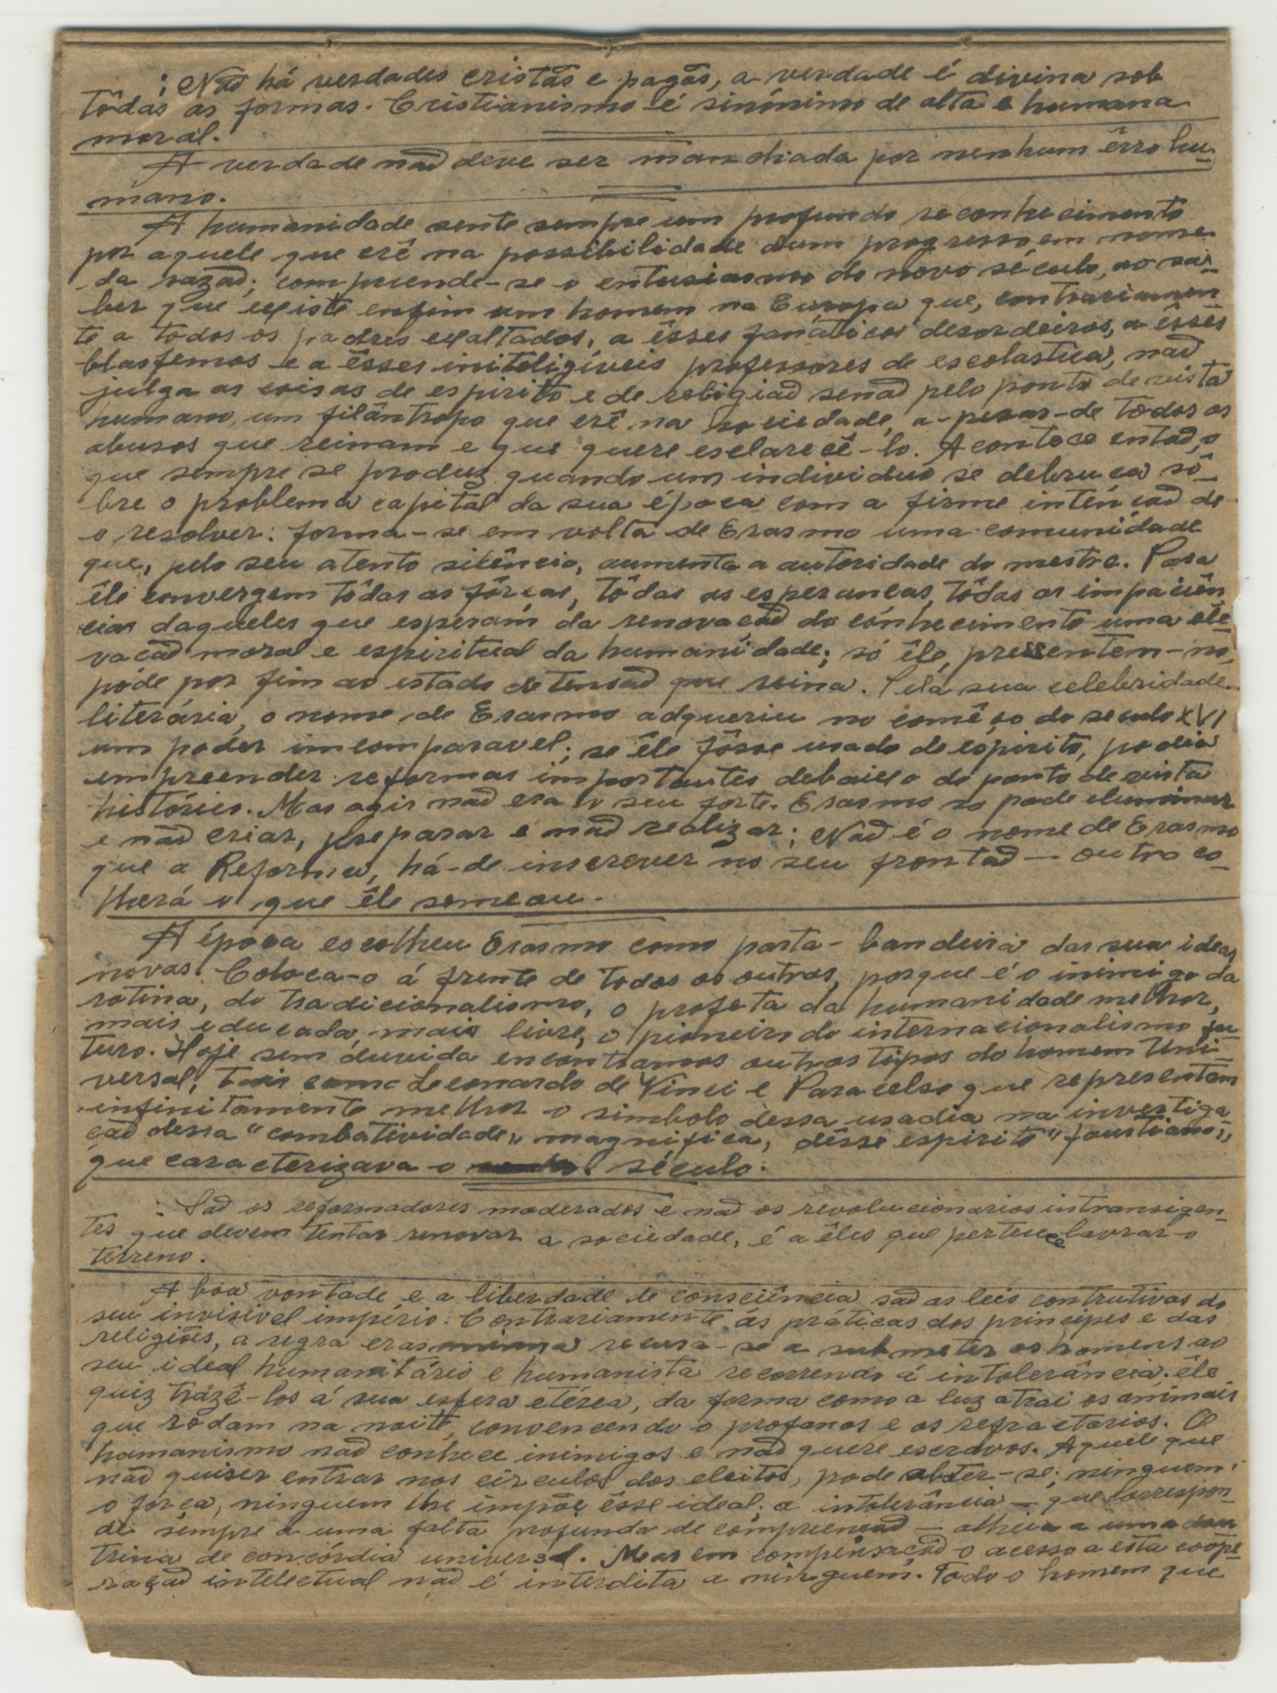 : Não há verdades cristãs e pagãs, a verdade é divina sob
tôdas as formas. Cristianismo é sinónimo de alta e humana
moral.
A verdade não deve ser manchada por nenhum êrro hu-
mano.
A humanidade sente sempre um profundo reconhecimento
por aquele que crê na possibilidade dum progresso em nome
da razão; compreende-se o entusiasmo do novo século, ao sa-
ber que existe enfim um homem na Europa que, contrariamen-
te a todos os padres exaltados, a êsses fanáticos desordeiros, a êsses
blasfemos e a êsses inintelegíveis professores de escolastica, não
julga as coisas de espirito e de religião senão pelo ponto de vista
humano, um filântropo que crê na sociedade, a-pesar-de todos os
abusos que reinam e que quere esclarecê-lo. Acontece então, o
que sempre se produz quando um individuo se debruça sô-
bre o problema capital da sua época com a firme intenção de
o resolver: forma-se em volta de Erasmo uma comunidade
que, pelo seu atento silêncio, aumenta a autoridade do mestre. Para
êle convergem tôdas as fôrças, tôdas as esperanças, tôdas as impaciên
cias daqueles que esperam da renovação do conhecimento uma ele-
vação moral e espiritual da humanidade; só êle, pressentem-no,
pode por fim ao estado de tensão que reina. Pela sua celebridade
literária, o nome de Erasmo adqueriu no comêço do seculo XVI
um poder imcomparavel; se êle fôsse usado de espirito, podia
empreender reformas importantes debaixo do ponto de vista
histórico. Mas agir não era o seu forte. Erasmo so pode iluminar
e não criar, preparar e não realizar; Não é o nome de Erasmo
que a Reforma, há-de inscrever no seu frontão — outro co-
lherá o que êle semeou.
A época escolheu Erasmo como porta-bandeira das suas ideas
novas. Coloca-o á frente de todos os outros, porque é o inimigo da
rotina, do tradicionalismo, o profeta da humanidade melhor,
mais educada, mais livre, o pioneiro do internacionalismo fu-
turo. Hoje sem duvida encontramos outros tipos do homem Uni-
versal, tais como Leonardo de Vinci e Paracelso que representam
infinitamente melhor o simbolo dessa usadia na investiga
ção dessa "combatividade" magnifica, dêsse espirito "faustiano",
que caracterizava o século.
: São os reformadores moderados e não os revolucionarios intransigen-
tes que devem tentar renovar a sociedade, é a êles que pertence lavrar o
terreno.
A boa vontade e a liberdade de consciência são as leis contrutivas do
seu invizivel império. Contrariamente ás práticas dos principes e das
religiões, a regra erasmiana recusa-se a submeter os homens ao
seu ideal humanitário e humanista recorrendo á intolerância. êle
quiz trazê-los á sua esfera etérea, da forma como a luz atrai os animais
que rodam na noite, convencendo o profanos e os refractários. O
humanismo não conhece inimigos e não quere escravos. Aquele que
não quiser entrar nos circulos dos eleitos, pode abster-se; ninguem
o força, ninguem lhe impõe êsse ideal; a intolerância — que correspon-
de sempre a uma falta profunda de compreensão — alheia a uma dou
trina de concórdia universal. Mas em compensação o acesso a esta coope-
ração intelectual não é interdita a ninguem. Todo o homem que